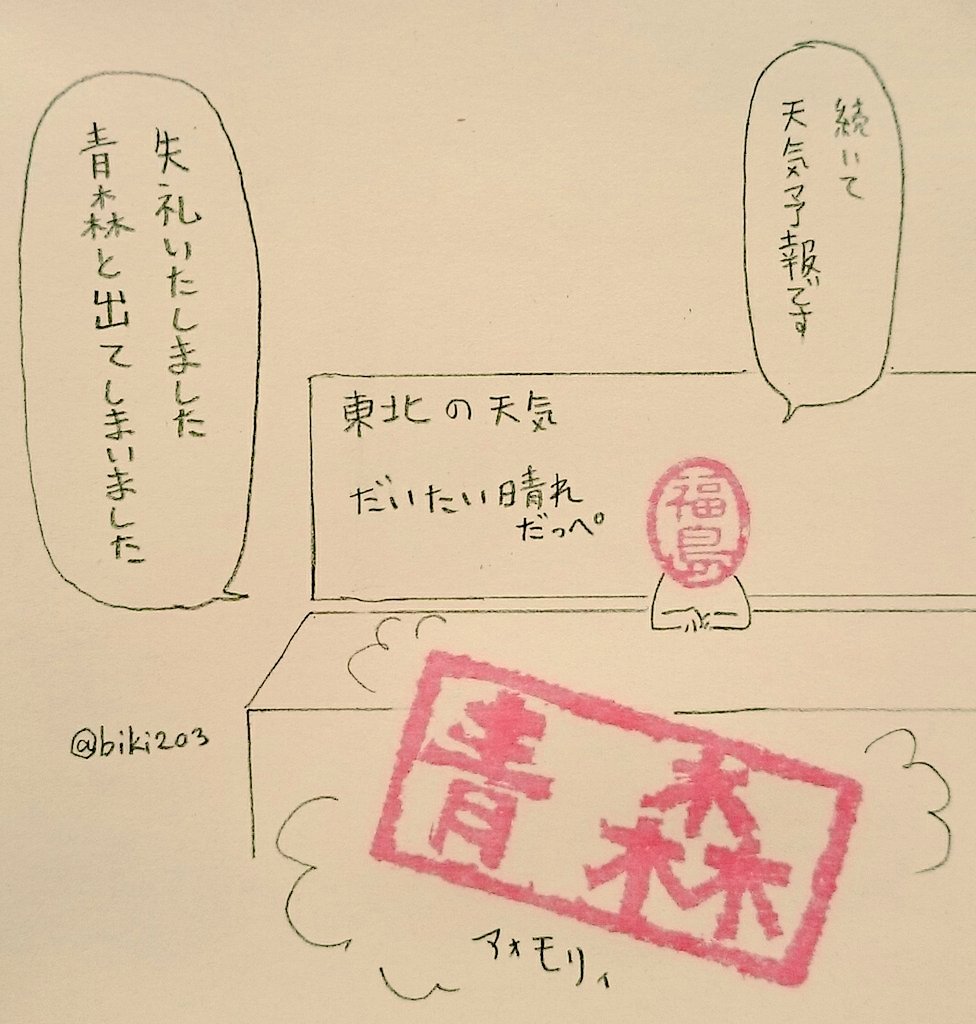 続いて
天気予報です
東北の天気
だいたい晴れ
だっぺ
福島
青森
アォモリィ
失礼いたしました
青森と出てしまいました
@biki203